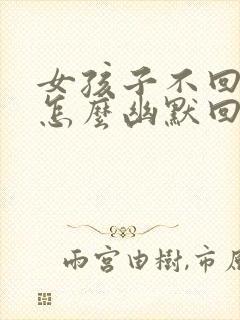 女孩子不回
怎麼幽默回
雨宮由樹,市原